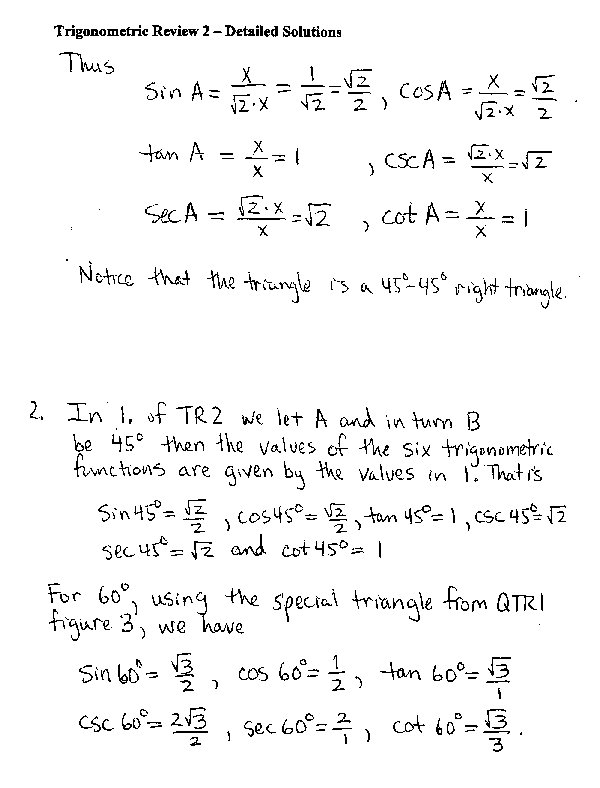 Trigonometric Review 2 – Detailed Solutions
Thus
Sin A = x/(√2·x) = 1/√2 = √2/2 , Cos A = x/(√2·x) = √2/2 .
tan A = x/x = 1 , CSC A = (√2·x)/x = √2
Sec A = (√2·x)/x = √2 , cot A = x/x = 1
Notice that the triangle is a 45°-45° right triangle.
2. In 1. of TR2 we let A and in turn B
be 45° then the values of the six trigonometric
functions are given by the values in 1. That is
Sin 45° = √2/2 , cos 45° = √2/2 , tan 45° = 1 , csc 45° = √2
sec 45° = √2 and cot 45° = 1
For 60°, using the special triangle from QTR1
figure 3, we have
Sin 60° = √3/2 , cos 60° = 1/2 , tan 60° = √3/1
CSC 60° = 2√3/2 , sec 60° = 2/1 , cot 60° = √3/3 .